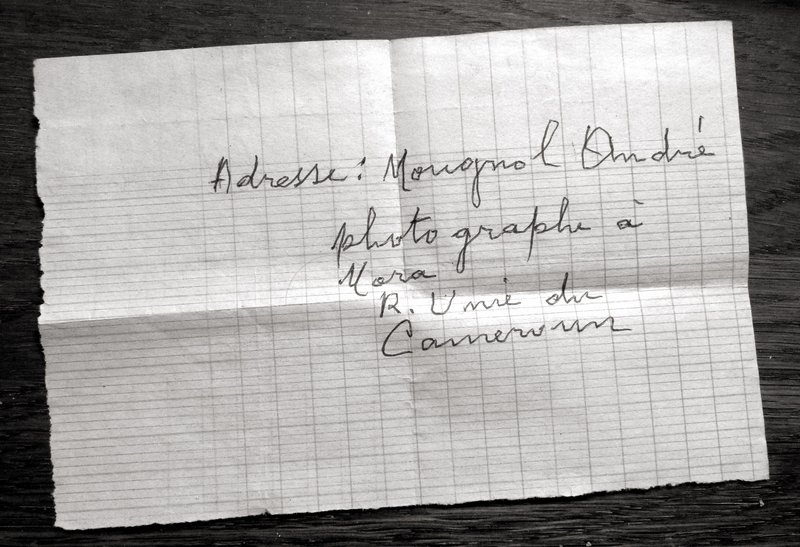 Adresse: Mougnol André
photographe à
Mora
R. Unie du
Cameroun